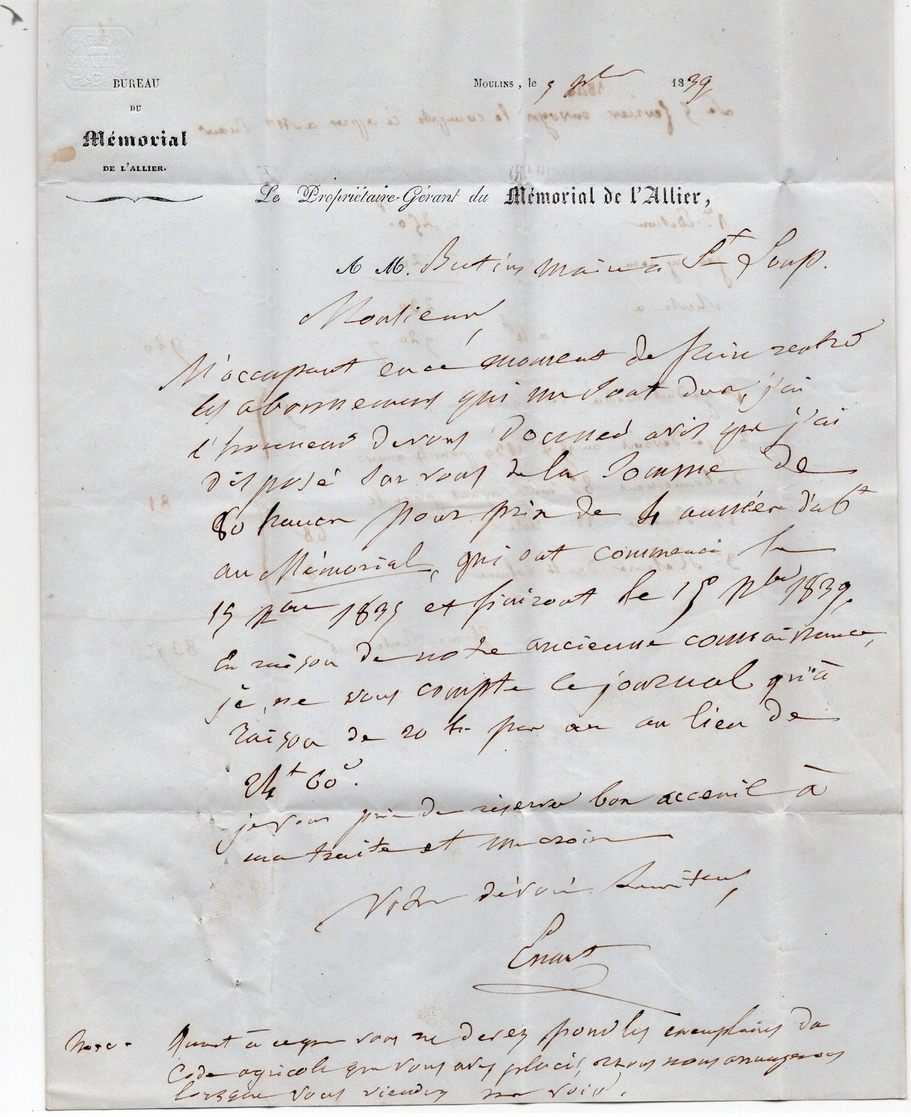 BUREAU
DU
Mémorial
DE L'ALLIER.
MOULINS, le 5 1839
Le Propriétaire-Gérant du Mémorial de l'Allier,
A M. maire à St Loup.
Monsieur,
M'occupant en ce moment de faire rentré
les abonnements qui me sont dus, j'ai
l'honneur de vous donner avis que j'ai
disposé sur vous de la somme de
80 francs pour prix de 4 années d'abt
au Mémorial, qui ont commencé le
15 9bre 1835 et finiront le 15 9bre 1839.
En raison de notre ancienne connaissance,
je ne vous compte le journal qu'à
raison de 20 fr par an au lieu de
24 f 60 c.
je vous prie de réserver bon acceuil à
ma traite et me croire
Votre dévoué serviteur,
Enaut
Nota - Quant à ce que vous me devez pour les exemplaires du
Code agricole que vous avez placés, nous nous arrangerons
lorsque vous viendrez me voir.